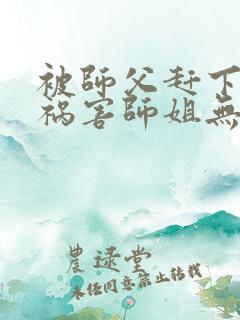 被師父赶下
祸害師姐無
農逯堂
未任同意禁止转载